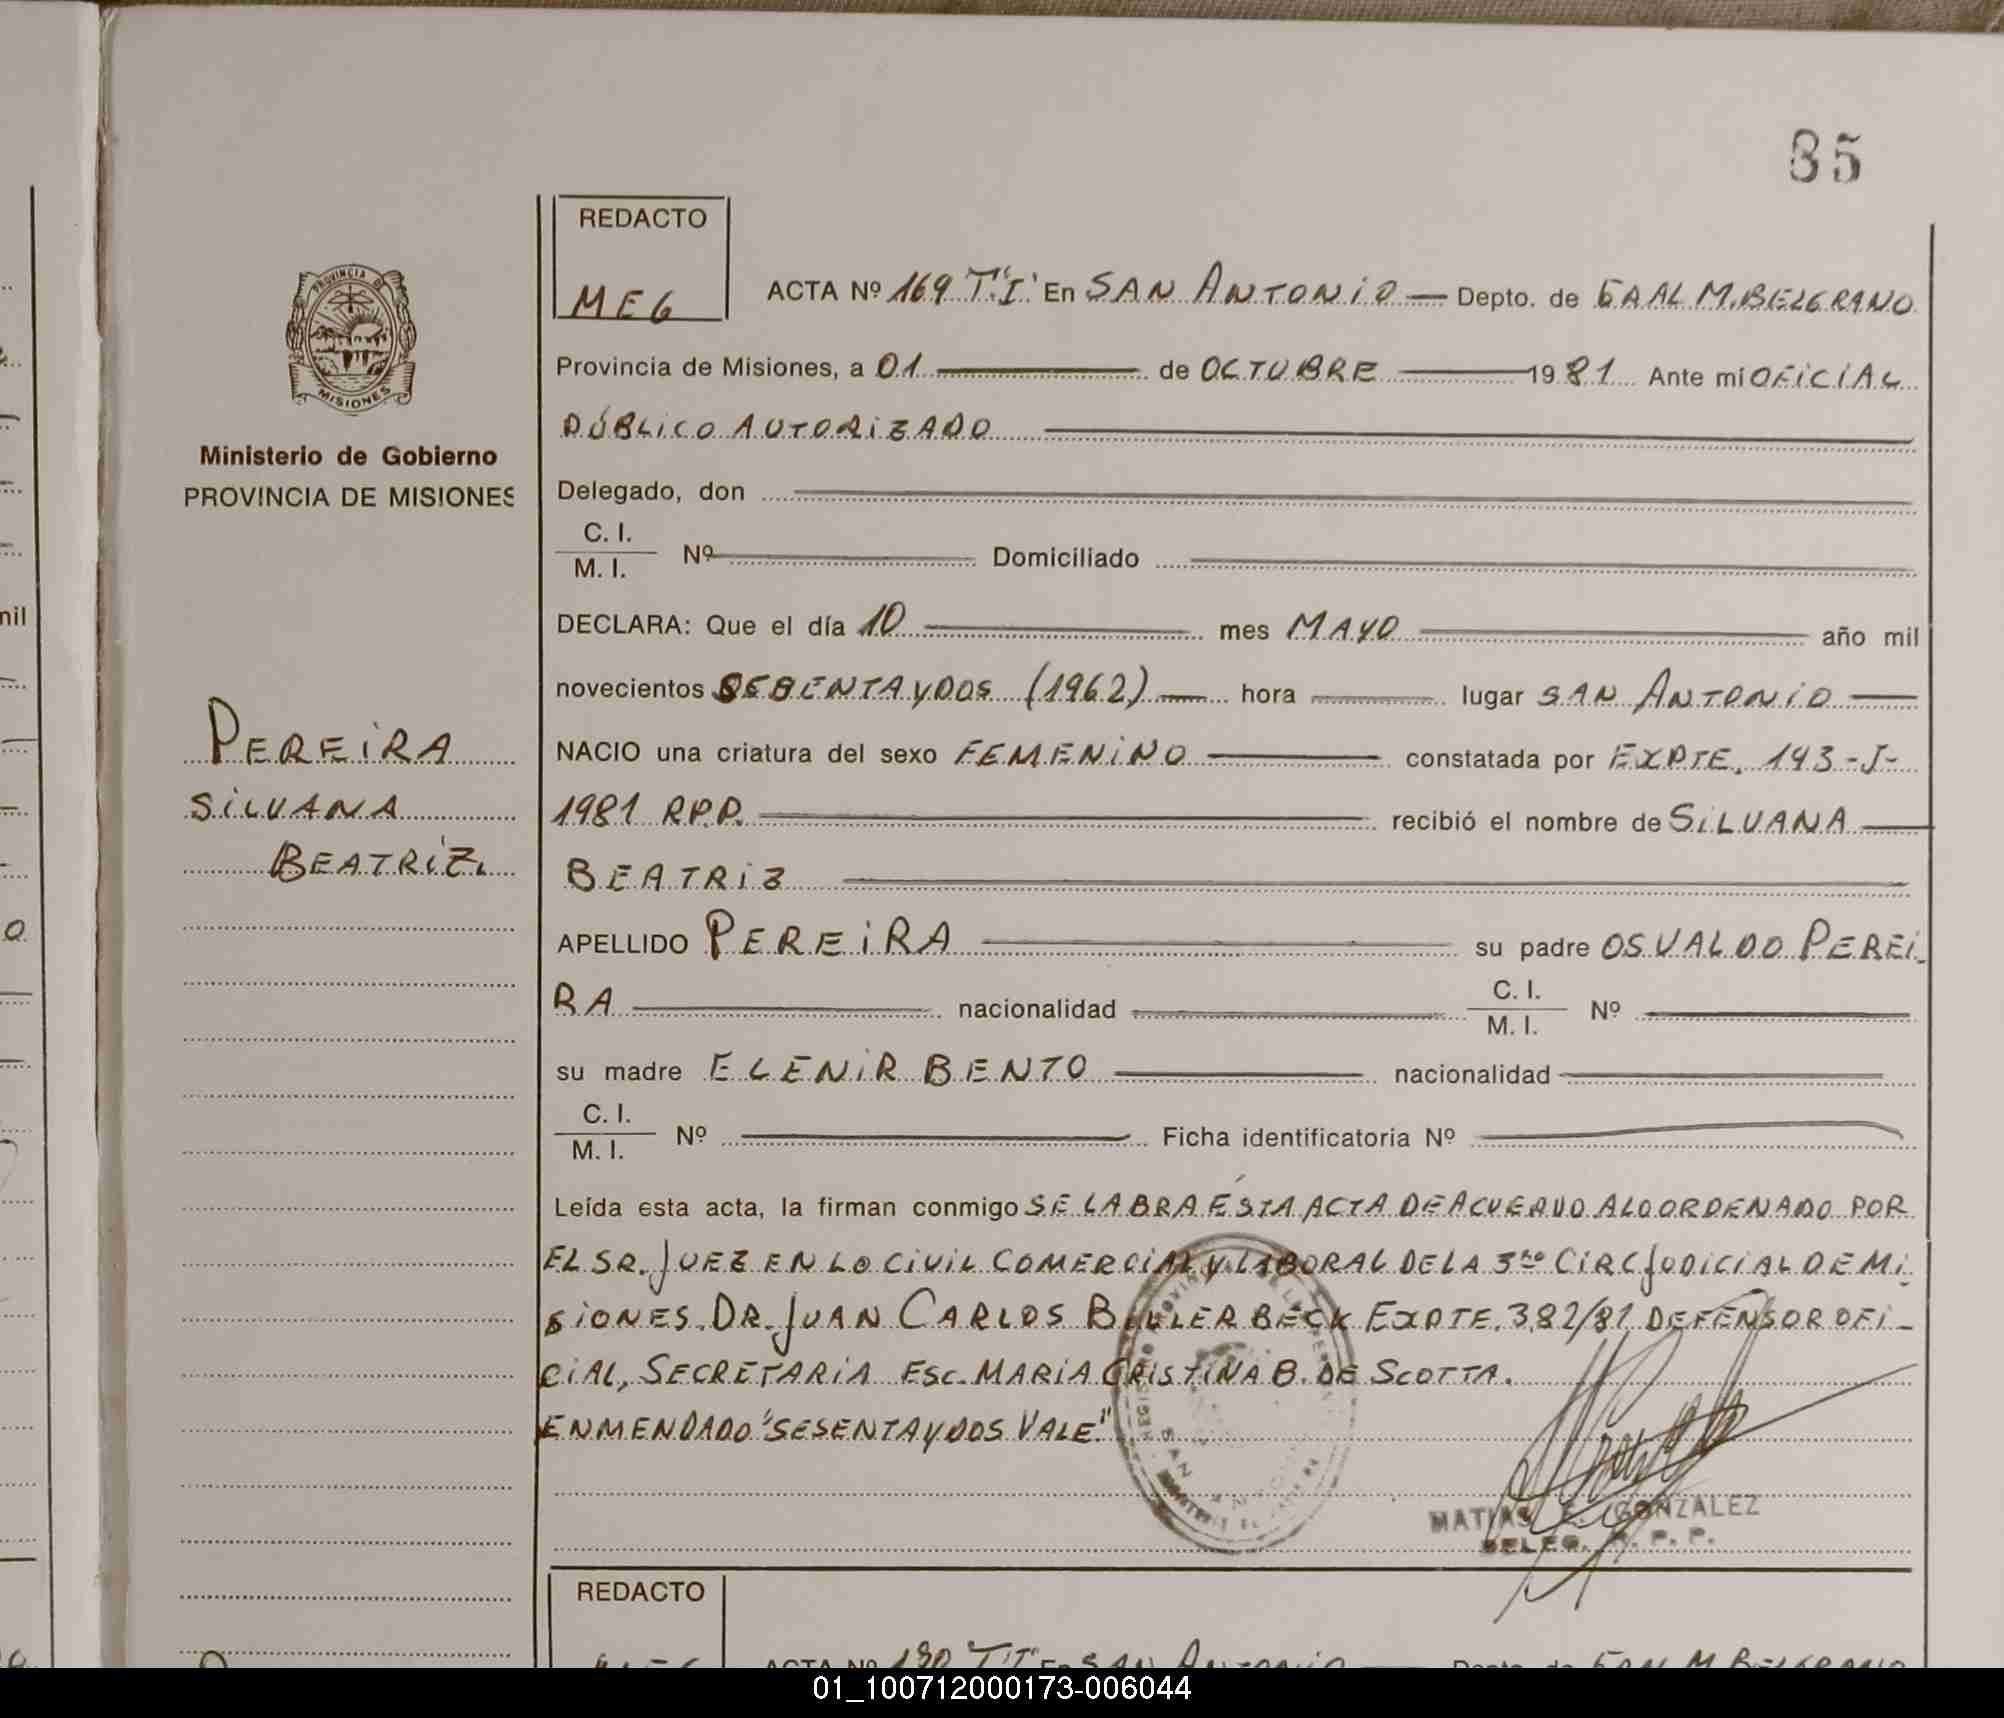 85
REDACTO
MEG
ACTA Nº 169 T."I" En SAN ANTONIO Depto. de GRAL M. BELGRANO
Provincia de Misiones, a 01 de OCTUBRE 1981 Ante mi OFICIAL
PÚBLICO AUTORIZADO
Delegado, don
C. I.
M. I. Nº Domiciliado
DECLARA: Que el día 10 mes MAYO año mil
novecientos SESENTA y DOS (1962) hora lugar SAN ANTONIO
NACIO una criatura del sexo FEMENINO constatada por EXPTE. 143-J-
1981 R.P.P. recibió el nombre de SILVANA
BEATRIZ
APELLIDO PEREIRA su padre OSVALDO PEREI-
RA nacionalidad C. I.
M. I. Nº
su madre ELENIR BENTO nacionalidad
C. I.
M. I. Nº Ficha identificatoria Nº
Leída esta acta, la firman conmigo SE LABRA ÉSTA ACTA DE ACUERDO A LO ORDENADO POR
EL SR. JUEZ EN LO CIVIL COMERCIAL y LABORAL DE LA 3ra CIRC JUDICIAL DE MI-
SIONES. DR. JUAN CARLOS BULLERBECK EXPTE. 382/81 DEFENSOR OFI-
CIAL, SECRETARIA ESC. MARIA CRISTINA B. DE SCOTTA.
ENMENDADO "SESENTA y DOS VALE."
MATIAS E. GONZALEZ
DELEG. R. P. P.
PROVINCIA D
MISIONES
Ministerio de Gobierno
PROVINCIA DE MISIONES
PEREIRA
SILVANA
BEATRIZ.
nil
REDACTO
ACTA Nº 190 T."I" En SAN ANTONIO Depto. de GRAL M. BELGRANO
01_100712000173-006044